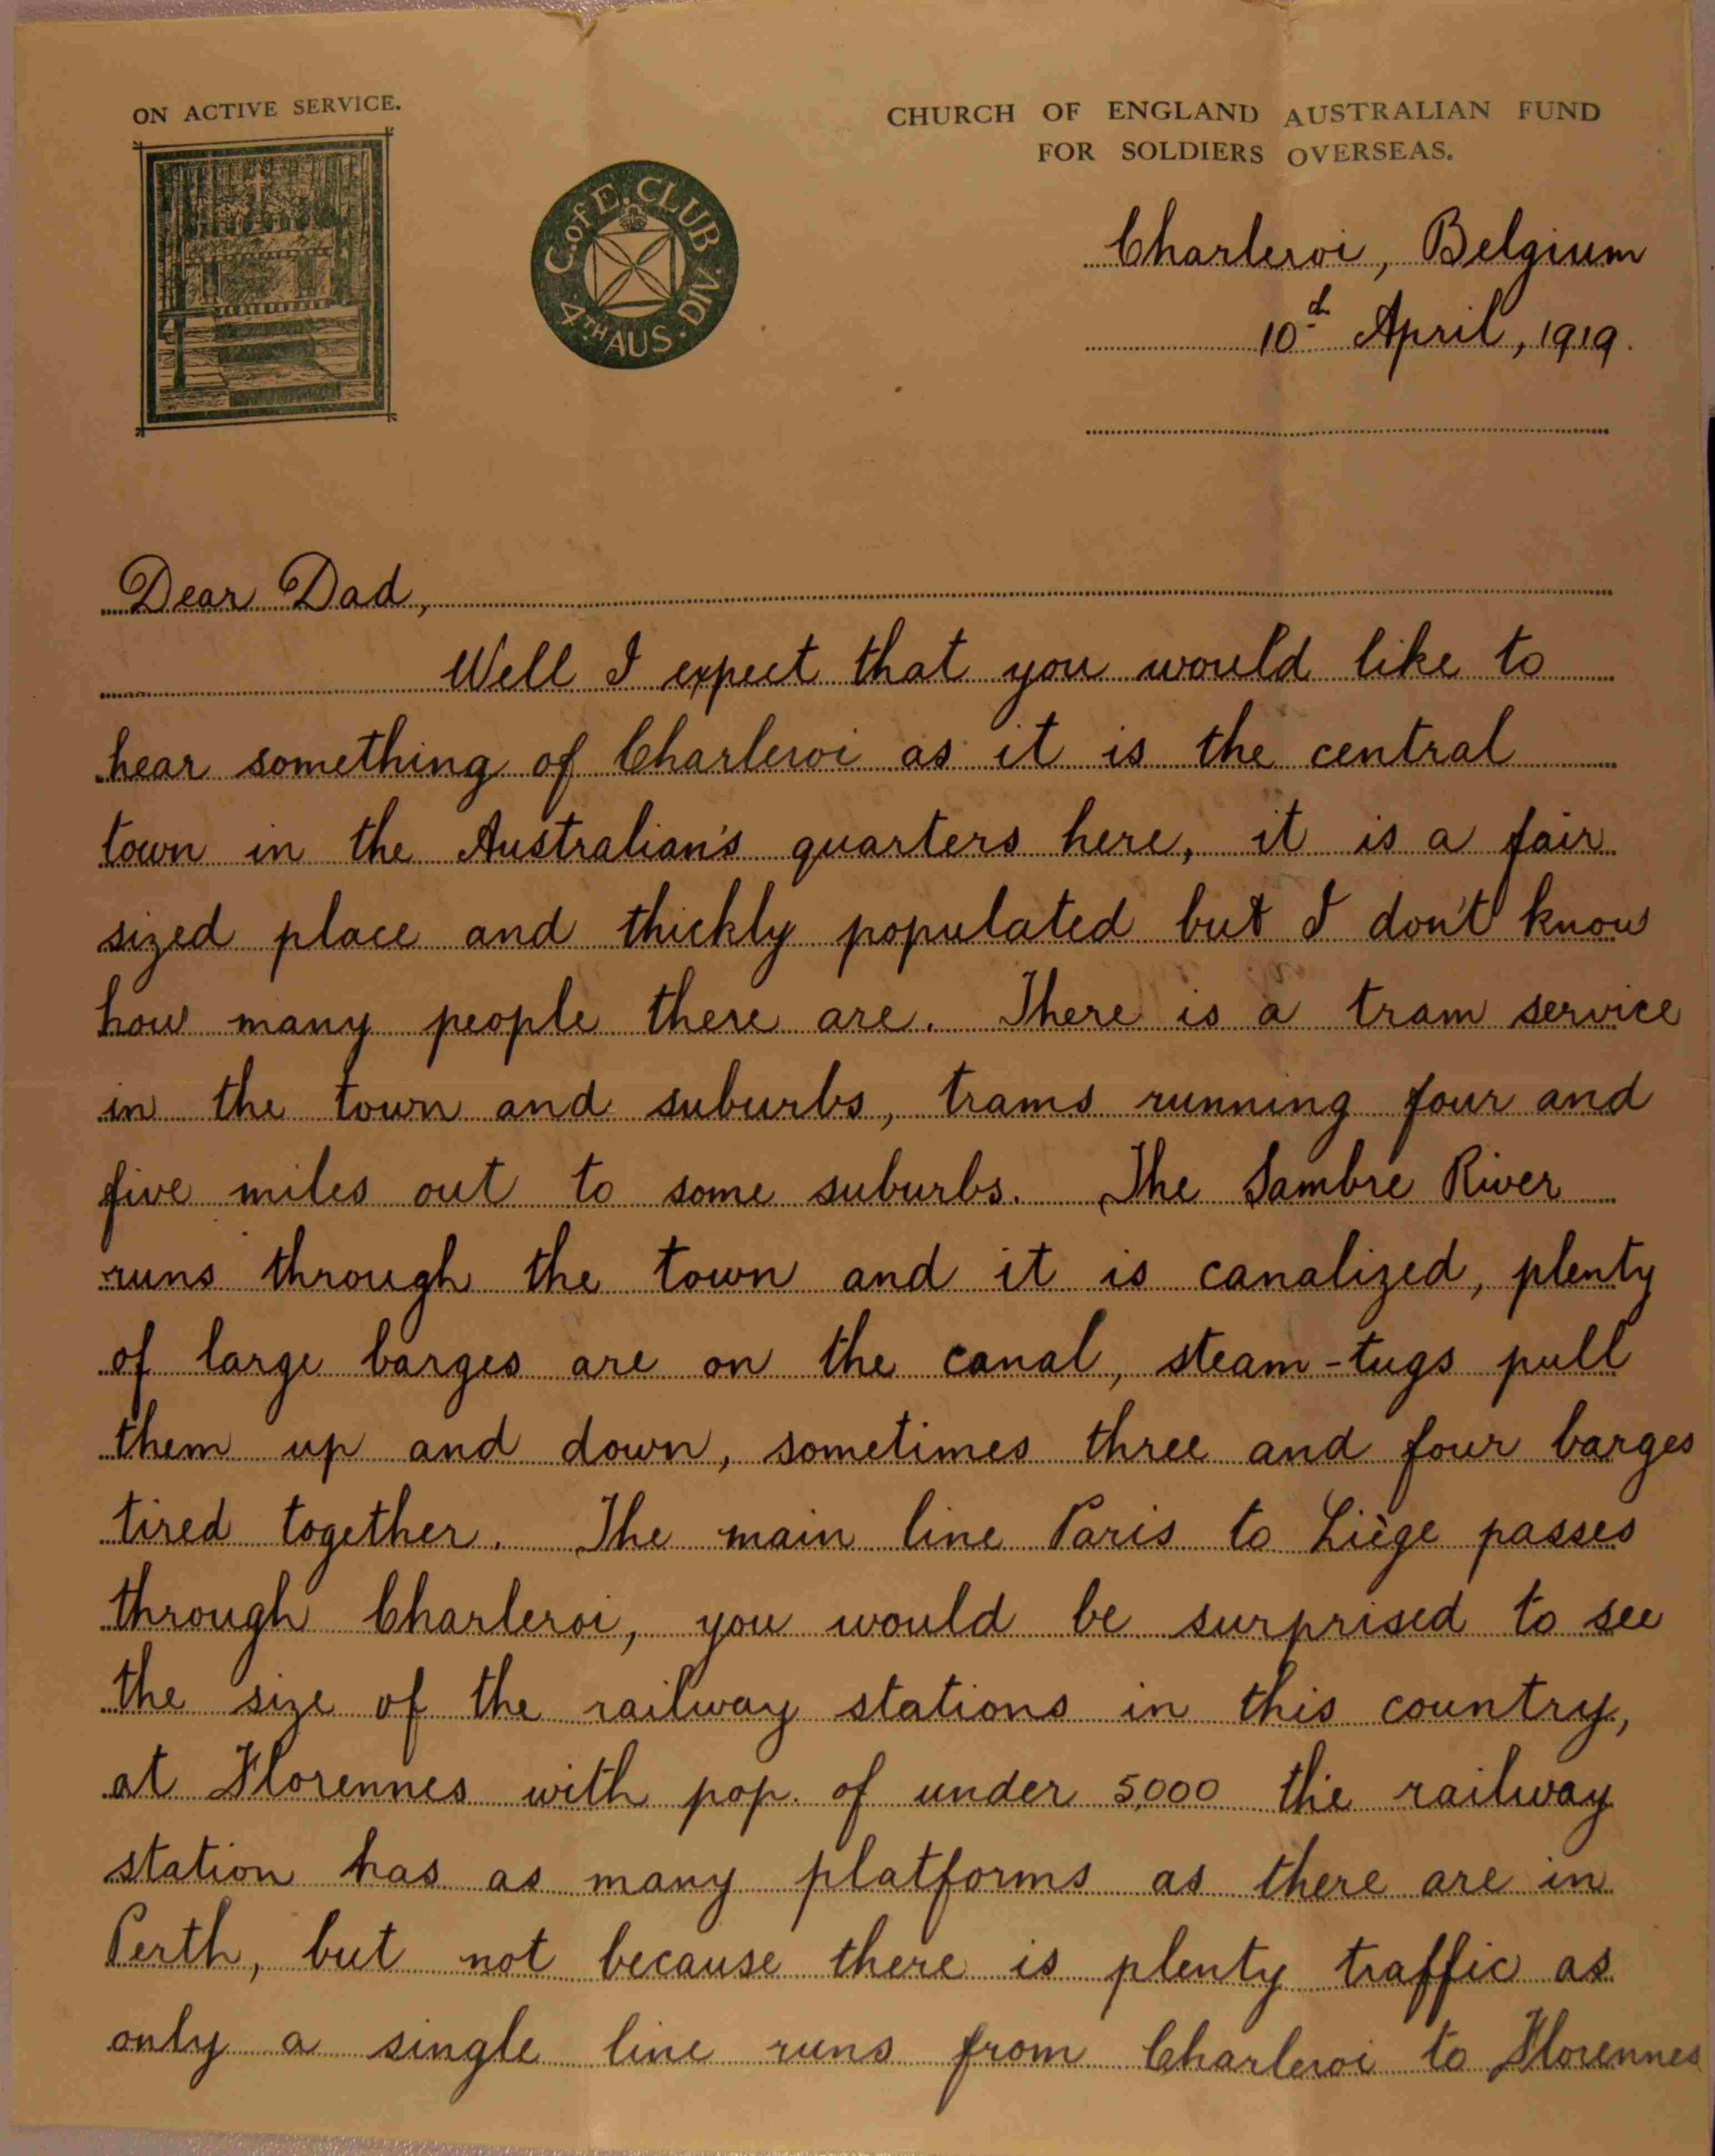 ON ACTIVE SERVICE.
CHURCH OF ENGLAND AUSTRALIAN FUND
FOR SOLDIERS OVERSEAS.
C. of E. CLUB.
4TH AUS. DIV.
Charleroi, Belgium
10th April, 1919.
Dear Dad,
Well I expect that you would like to
hear something of Charleroi as it is the central
town in the Australian's quarters here, it is a fair
sized place and thickly populated but I don't know
how many people there are. There is a tram service
in the town and suburbs, trams running four and
five miles out to some suburbs. The Sambre River
runs through the town and it is canalized, plenty
of large barges are on the canal, steam-tugs pull
them up and down, sometimes three and four barges
tired together. The main line Paris to Liège passes
through Charleroi, you would be surprised to see
the size of the railway stations in this country,
at Florennes with pop. of under 5,000 the railway
station has as many platforms as there are in
Perth, but not because there is plenty traffic as
only a single line runs from Charleroi to Florennes